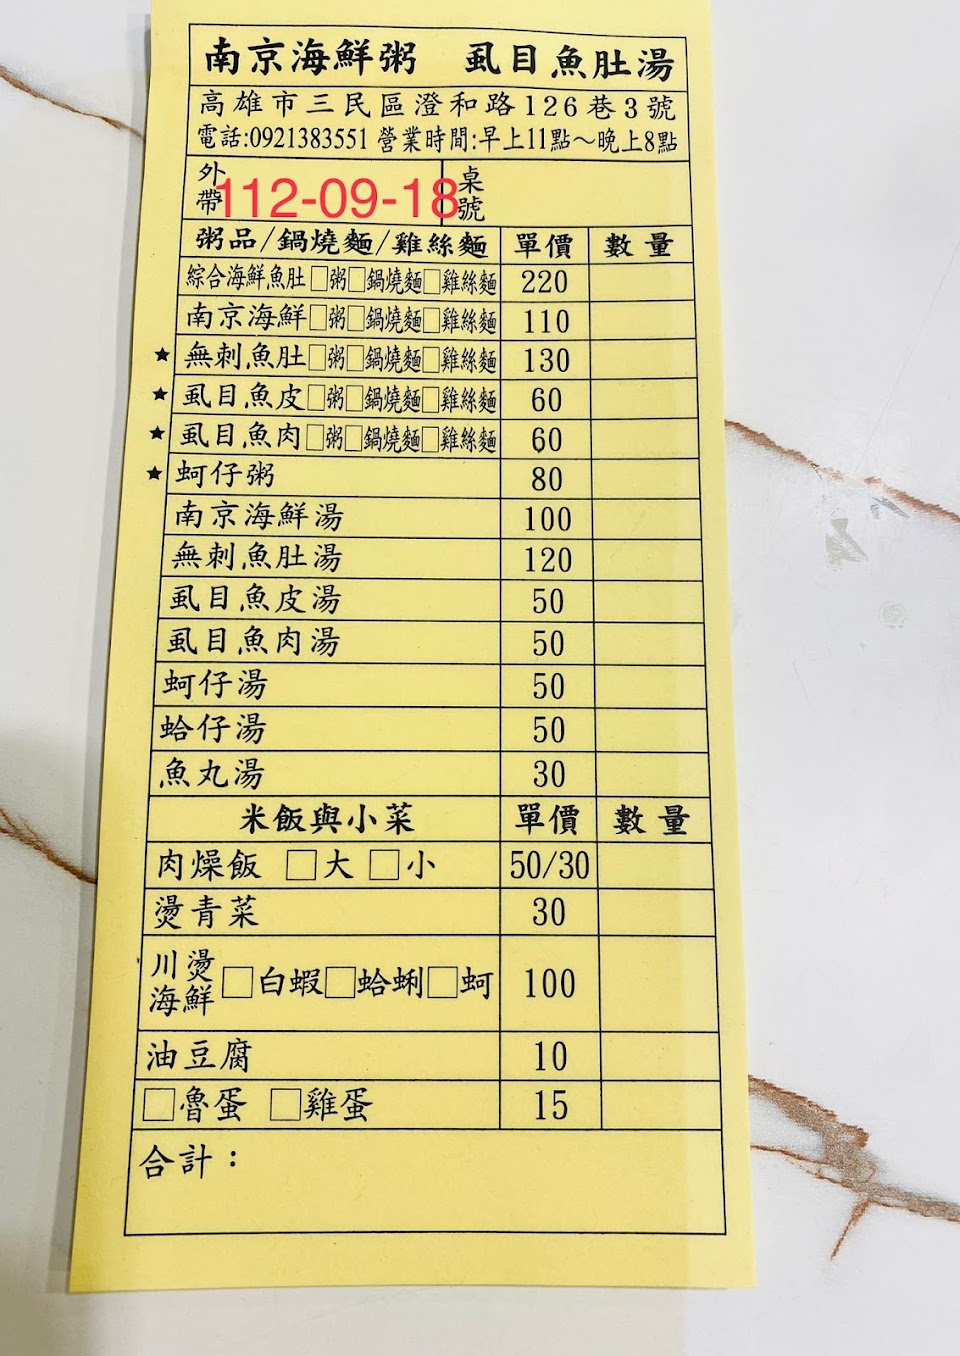 南京海鮮粥 虱目魚肚湯
高雄市三民區澄和路126巷3號
電話:0921383551 營業時間:早上11點～晚上8點
外帶 112-09-18 桌號
粥品/鍋燒麵/雞絲麵 單價 數量
綜合海鮮魚肚□粥□鍋燒麵□雞絲麵 220
南京海鮮□粥□鍋燒麵□雞絲麵 110
★ 無刺魚肚□粥□鍋燒麵□雞絲麵 130
★ 虱目魚皮□粥□鍋燒麵□雞絲麵 60
★ 虱目魚肉□粥□鍋燒麵□雞絲麵 60
★ 蚵仔粥 80
南京海鮮湯 100
無刺魚肚湯 120
虱目魚皮湯 50
虱目魚肉湯 50
蚵仔湯 50
蛤仔湯 50
魚丸湯 30
米飯與小菜 單價 數量
肉燥飯 □大 □小 50/30
燙青菜 30
川燙海鮮 □白蝦□蛤蜊□蚵 100
油豆腐 10
□魯蛋 □雞蛋 15
合計：